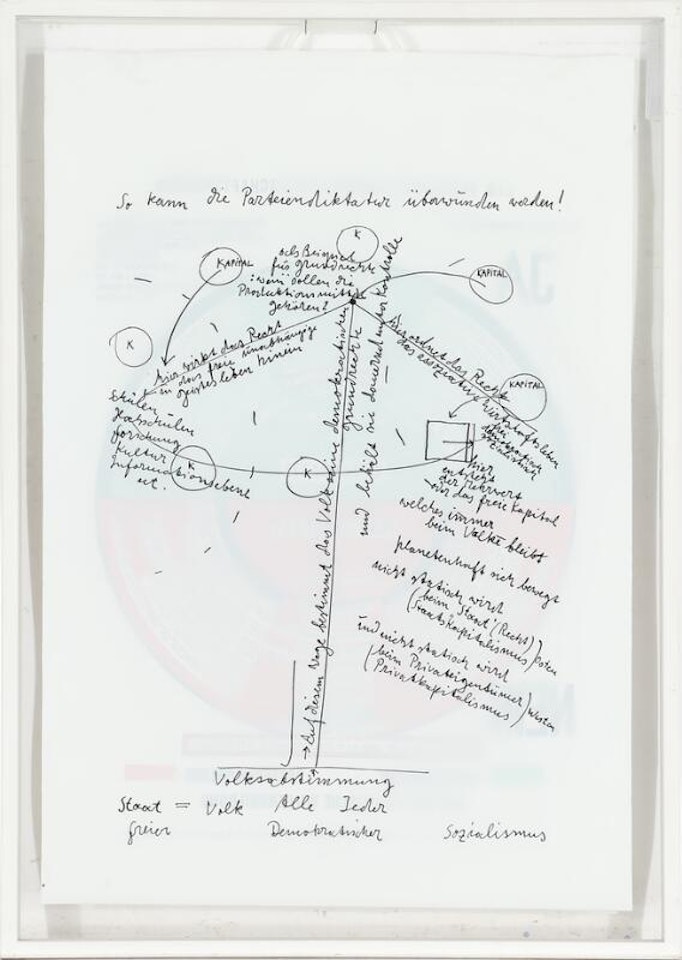 So kann die Parteiendiktatur überwunden werden!
K
KAPITAL
als Beispiel
für Grundrechte
: wem sollen die
Produktionsmittel
gehören?
KAPITAL
K
hier wirkt das Recht
in das freie unabhängige
Geistesleben hinein
Schulen
Hochschulen
Forschung
Kultur
Informationsebene
etc.
K
K
→ Auf diesem Wege bestimmt das Volk seine demokratischen
Grundrechte
und behält sie dauernd unter Kontrolle
hier ordnet das Recht
das assoziative Wirtschaftsleben
frei
demokratisch
sozialistisch
KAPITAL
hier
entsteht
der Mehrwert
für das freie Kapital
welches immer
beim Volke bleibt
planetenhaft sich bewegt
nicht statisch wird
(beim Staat (Recht)
(Staatskapitalismus) Osten
und nicht statisch wird
(beim Privateigentümer)
(Privatkapitalismus) Westen
Volksabstimmung
Staat = Volk Alle Jeder
freier Demokratischer Sozialismus